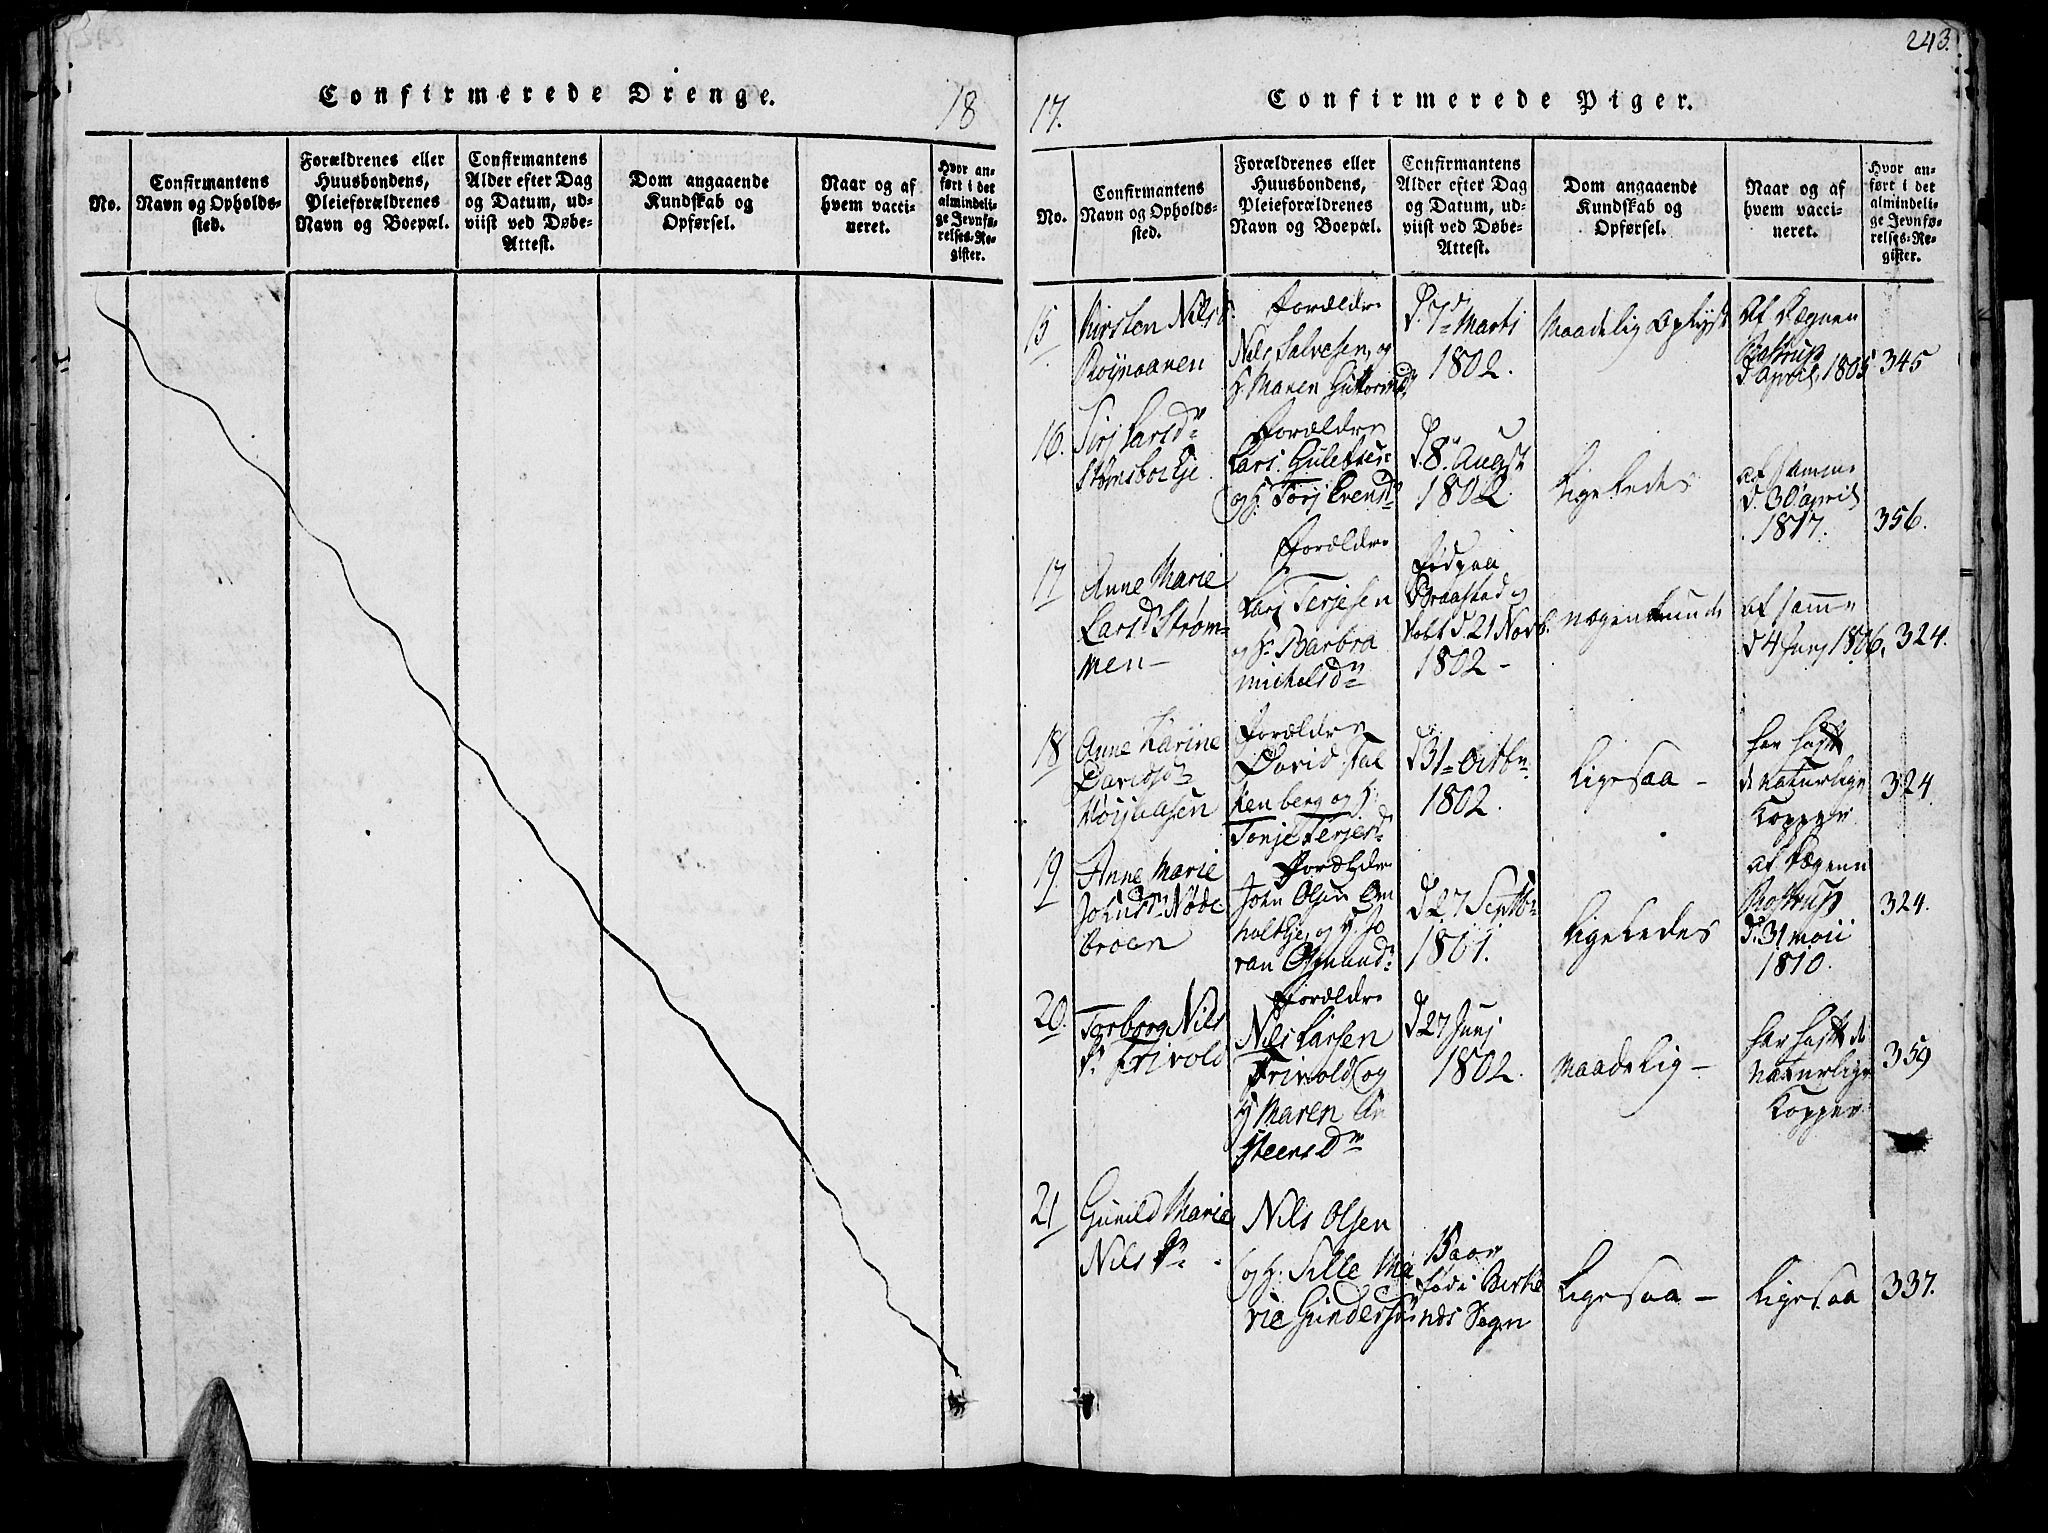 243.
Confirmerede Drenge.
18
No.
Confirmantens
Navn og Opholds-
sted.
Forældrenes eller
Huusbondens,
Pleieforældrenes
Navn og Boepæl.
Confirmantens
Alder efter Dag
og Datum, ud-
viist ved Døbe-
Attest.
Dom angaaende
Kundskab og
Opførsel.
Naar og af
hvem vacci-
neret.
Hvor an-
ført i det
almindeli-
ge Jevnfø-
relses-Re-
gister.
17.
Confirmerede Piger.
No.
Confirmantens
Navn og Opholds-
sted.
Forældrenes eller
Huusbondens,
Pleieforældrenes
Navn og Boepæl.
Confirmantens
Alder efter Dag
og Datum, ud-
viist ved Døbe-
Attest.
Dom angaaende
Kundskab og
Opførsel.
Naar og af
hvem vacci-
neret.
Hvor an-
ført i det
almindeli-
ge Jevnfø-
relses-Re-
gister.
15
Kirsten Nilsd:
Røjnaanen
Forældre
Nils Salvesen, og
H. Maren Guttormsdr
d. 7de Martj
1802.
Maadelig Oplyst
Af Degnen
Bostrup
d april 1805
345
16.
Sirj Larsdr
Forældre
Lars
og H. Torj Evensdr
d. 8. Augst
1802
Ligeledes
af samme
d. 30 april
1817.
356.
17
Anne Marie
Larsdr Strøm-
men -
Forældre
Lars Terjesen
og H. Barbra
Michelsdr
Fød paa
og
døbt d. 21 Novb.
1802 -
nogenlunde
af samme
d 4 Junj 1806.
324.
18
Anne Karine
Davidsdr
Forældre
David Fal
kenberg og H:
Tonje Terjesdr
d 31 Octbr
1802.
Ligesaa -
har haft
de naturlige
Kopper
324.
19.
Anne Marie
Johnsdr Nøde
broen
Forældre
John Olsen Om
holteje, og H. Jo
ran Asmundsdr
d 27 Septbr
1801.
Ligeledes
af Degnen
Bostrup
d. 31 maii
1810.
324.
20.
Torborg Nils
dr Frivold
Forældre
Nils Larsen
Frivold og
H Maren An
steensdr
d 27 Junj
1802.
Maadelig -
har haft de
naturlige
Kopper.
359
21
Gunild Marie
Nilsdr
Nils Olsen
og H. Sille Ma
rie Gundersdr
15 aar
fød i Birke
næs Sogn
Ligesaa -
Ligesaa
337.